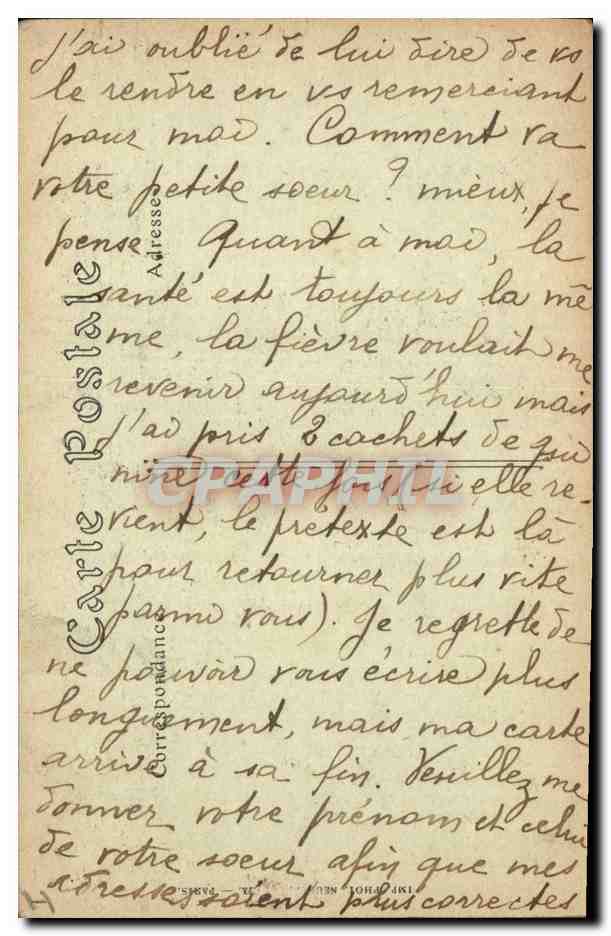 J'ai oublié de lui dire de vs
le rendre en vs remerciant
pour moi. Comment va
votre petite soeur ? mieux, je
pense Quant à moi, la
santé est toujours la mê
me, la fièvre voulait me
revenir aujourd'hui mais
j'ai pris 2 cachets de qui
nine cette fois, si elle re-
vient, le prétexte est là
pour retourner plus vite
parmi vous). Je regrette de
ne pouvoir vous écrire plus
longuement, mais ma carte
arrive à sa fin. Veuillez me
donner votre prénom et celui
de votre soeur afin que mes
adresses soient plus correctes
Carte Postale
Adresse
Correspondance
CPAPHIL
IMP. PHOT. NEUR PARIS.